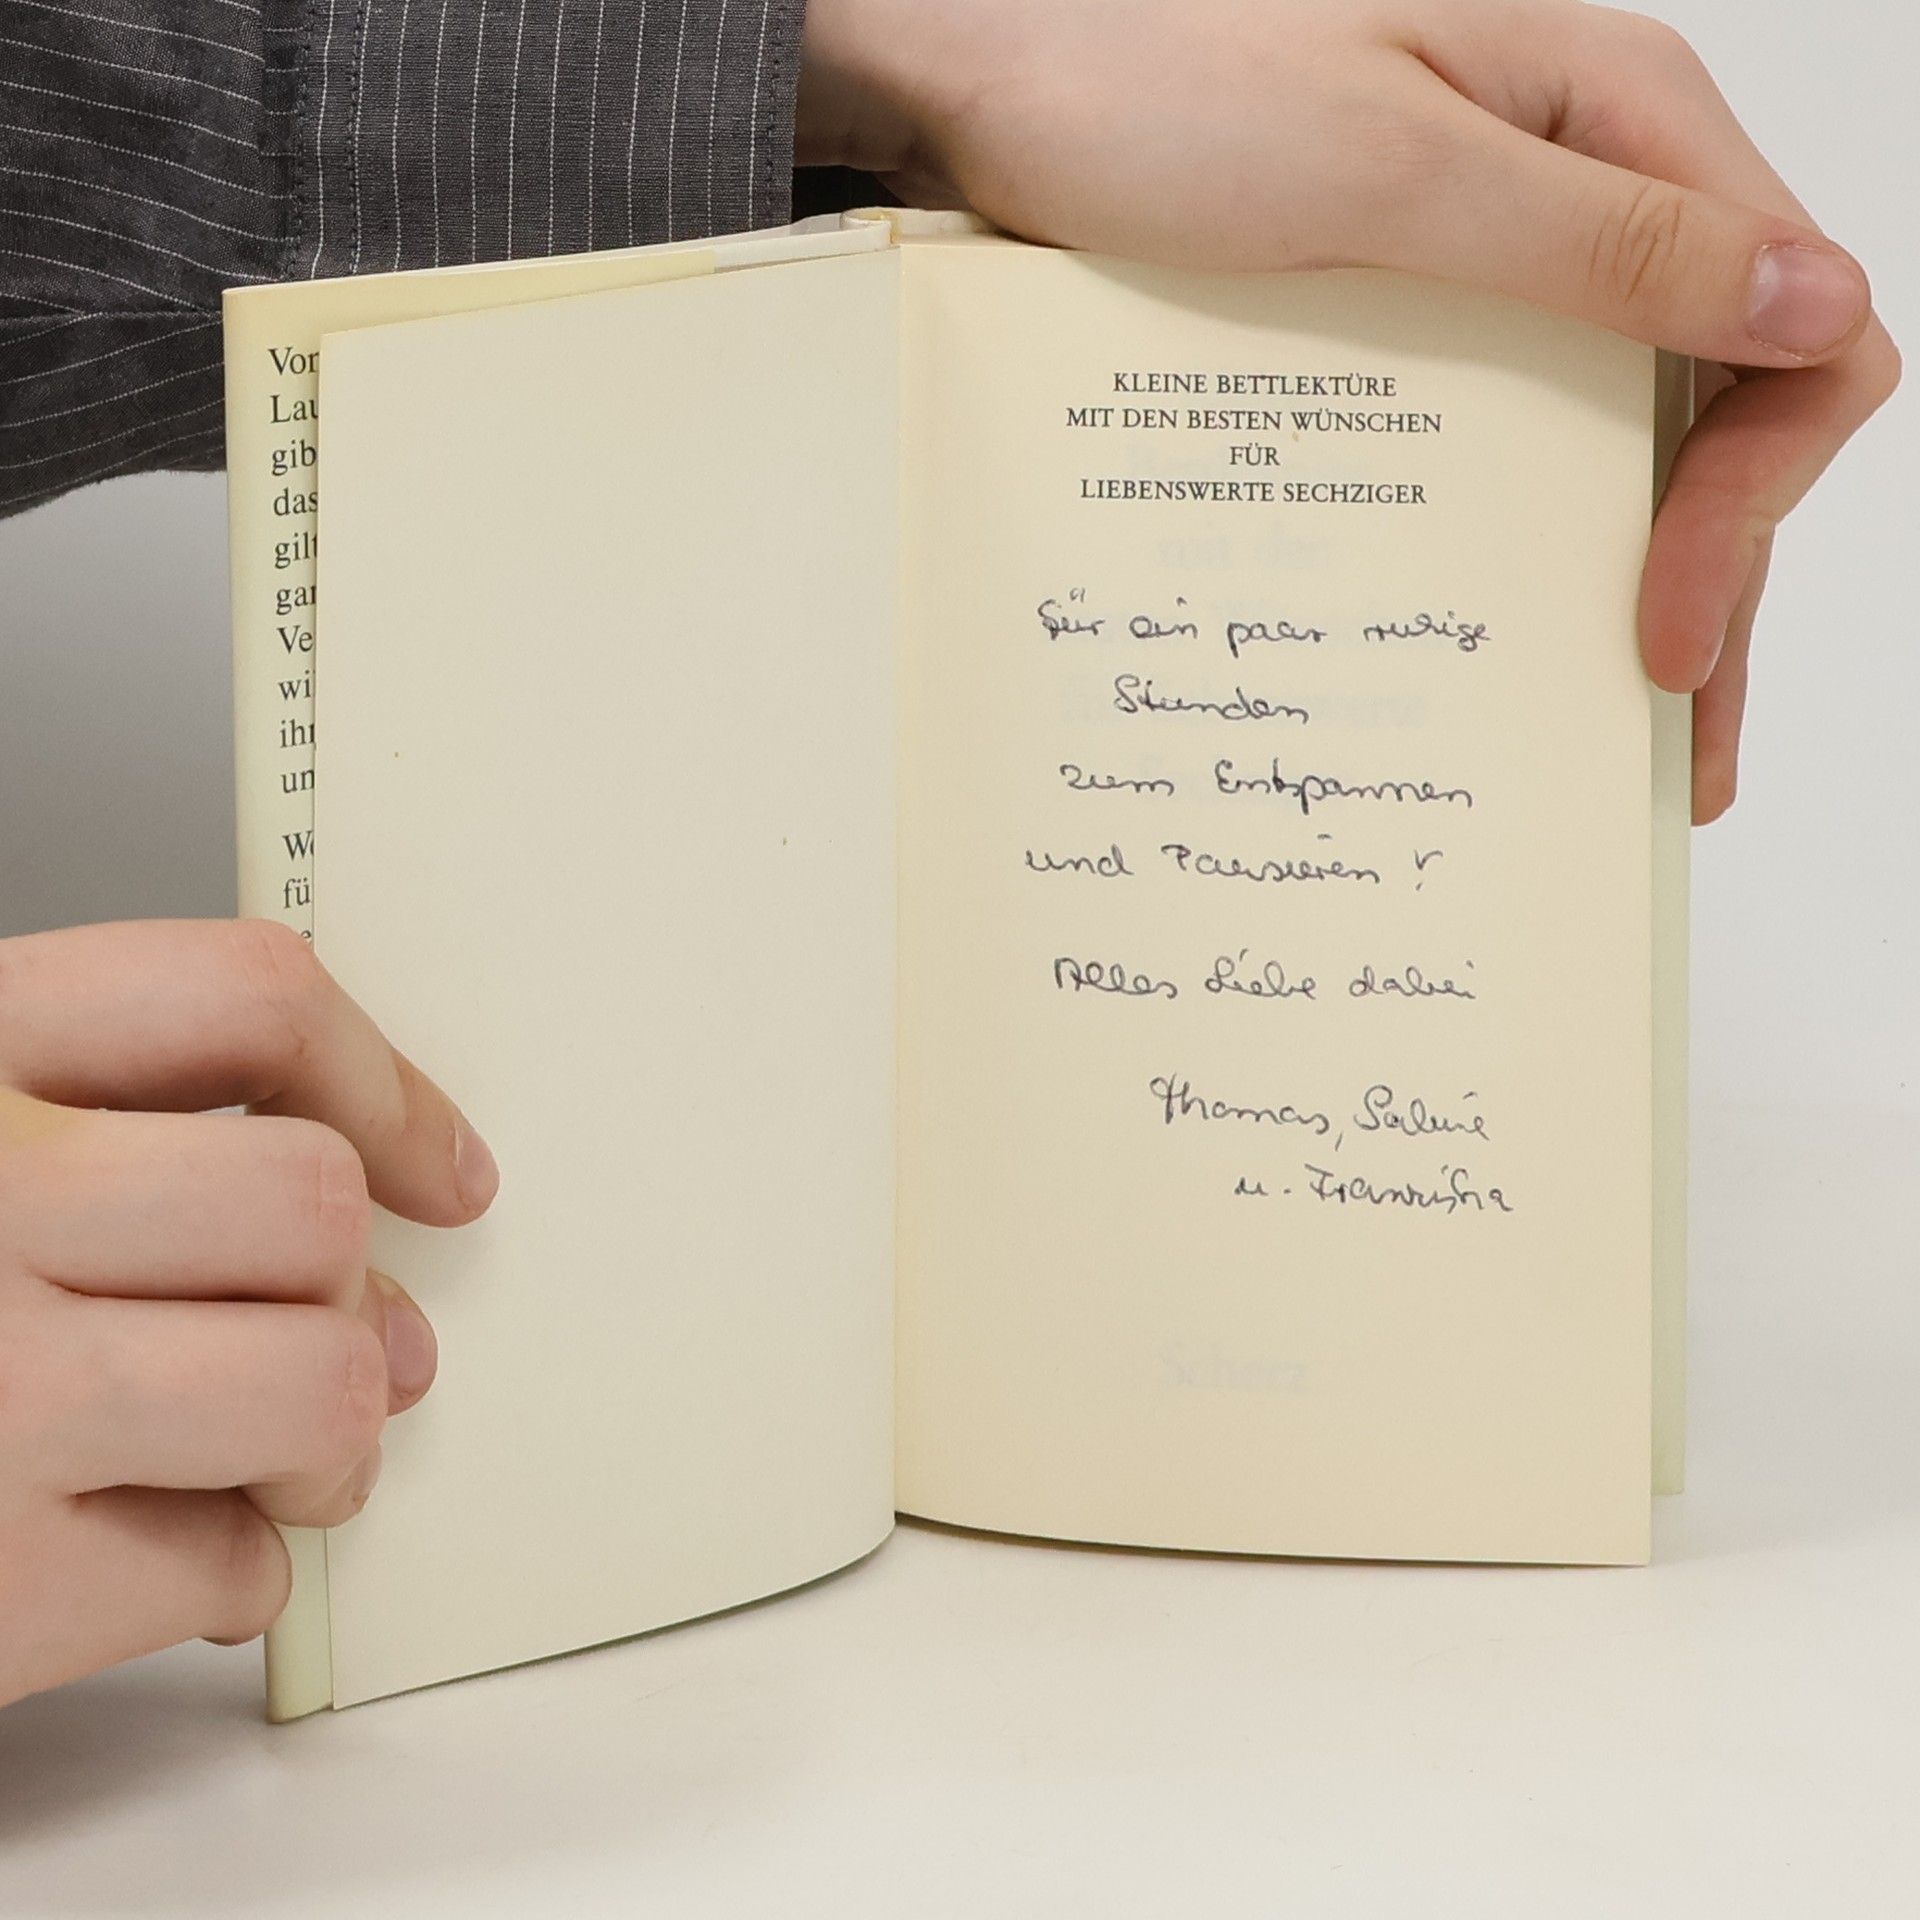 Von
Lau
gib
das
gilt
gan
Ve
wi
ihr
un
We
fü
KLEINE BETTLEKTÜRE
MIT DEN BESTEN WÜNSCHEN
FÜR
LIEBENSWERTE SECHZIGER
Für ein paar ruhige
Stunden
zum Entspannen
und Pausieren!
Alles Liebe dabei
Thomas, Sabine
u. Franziska